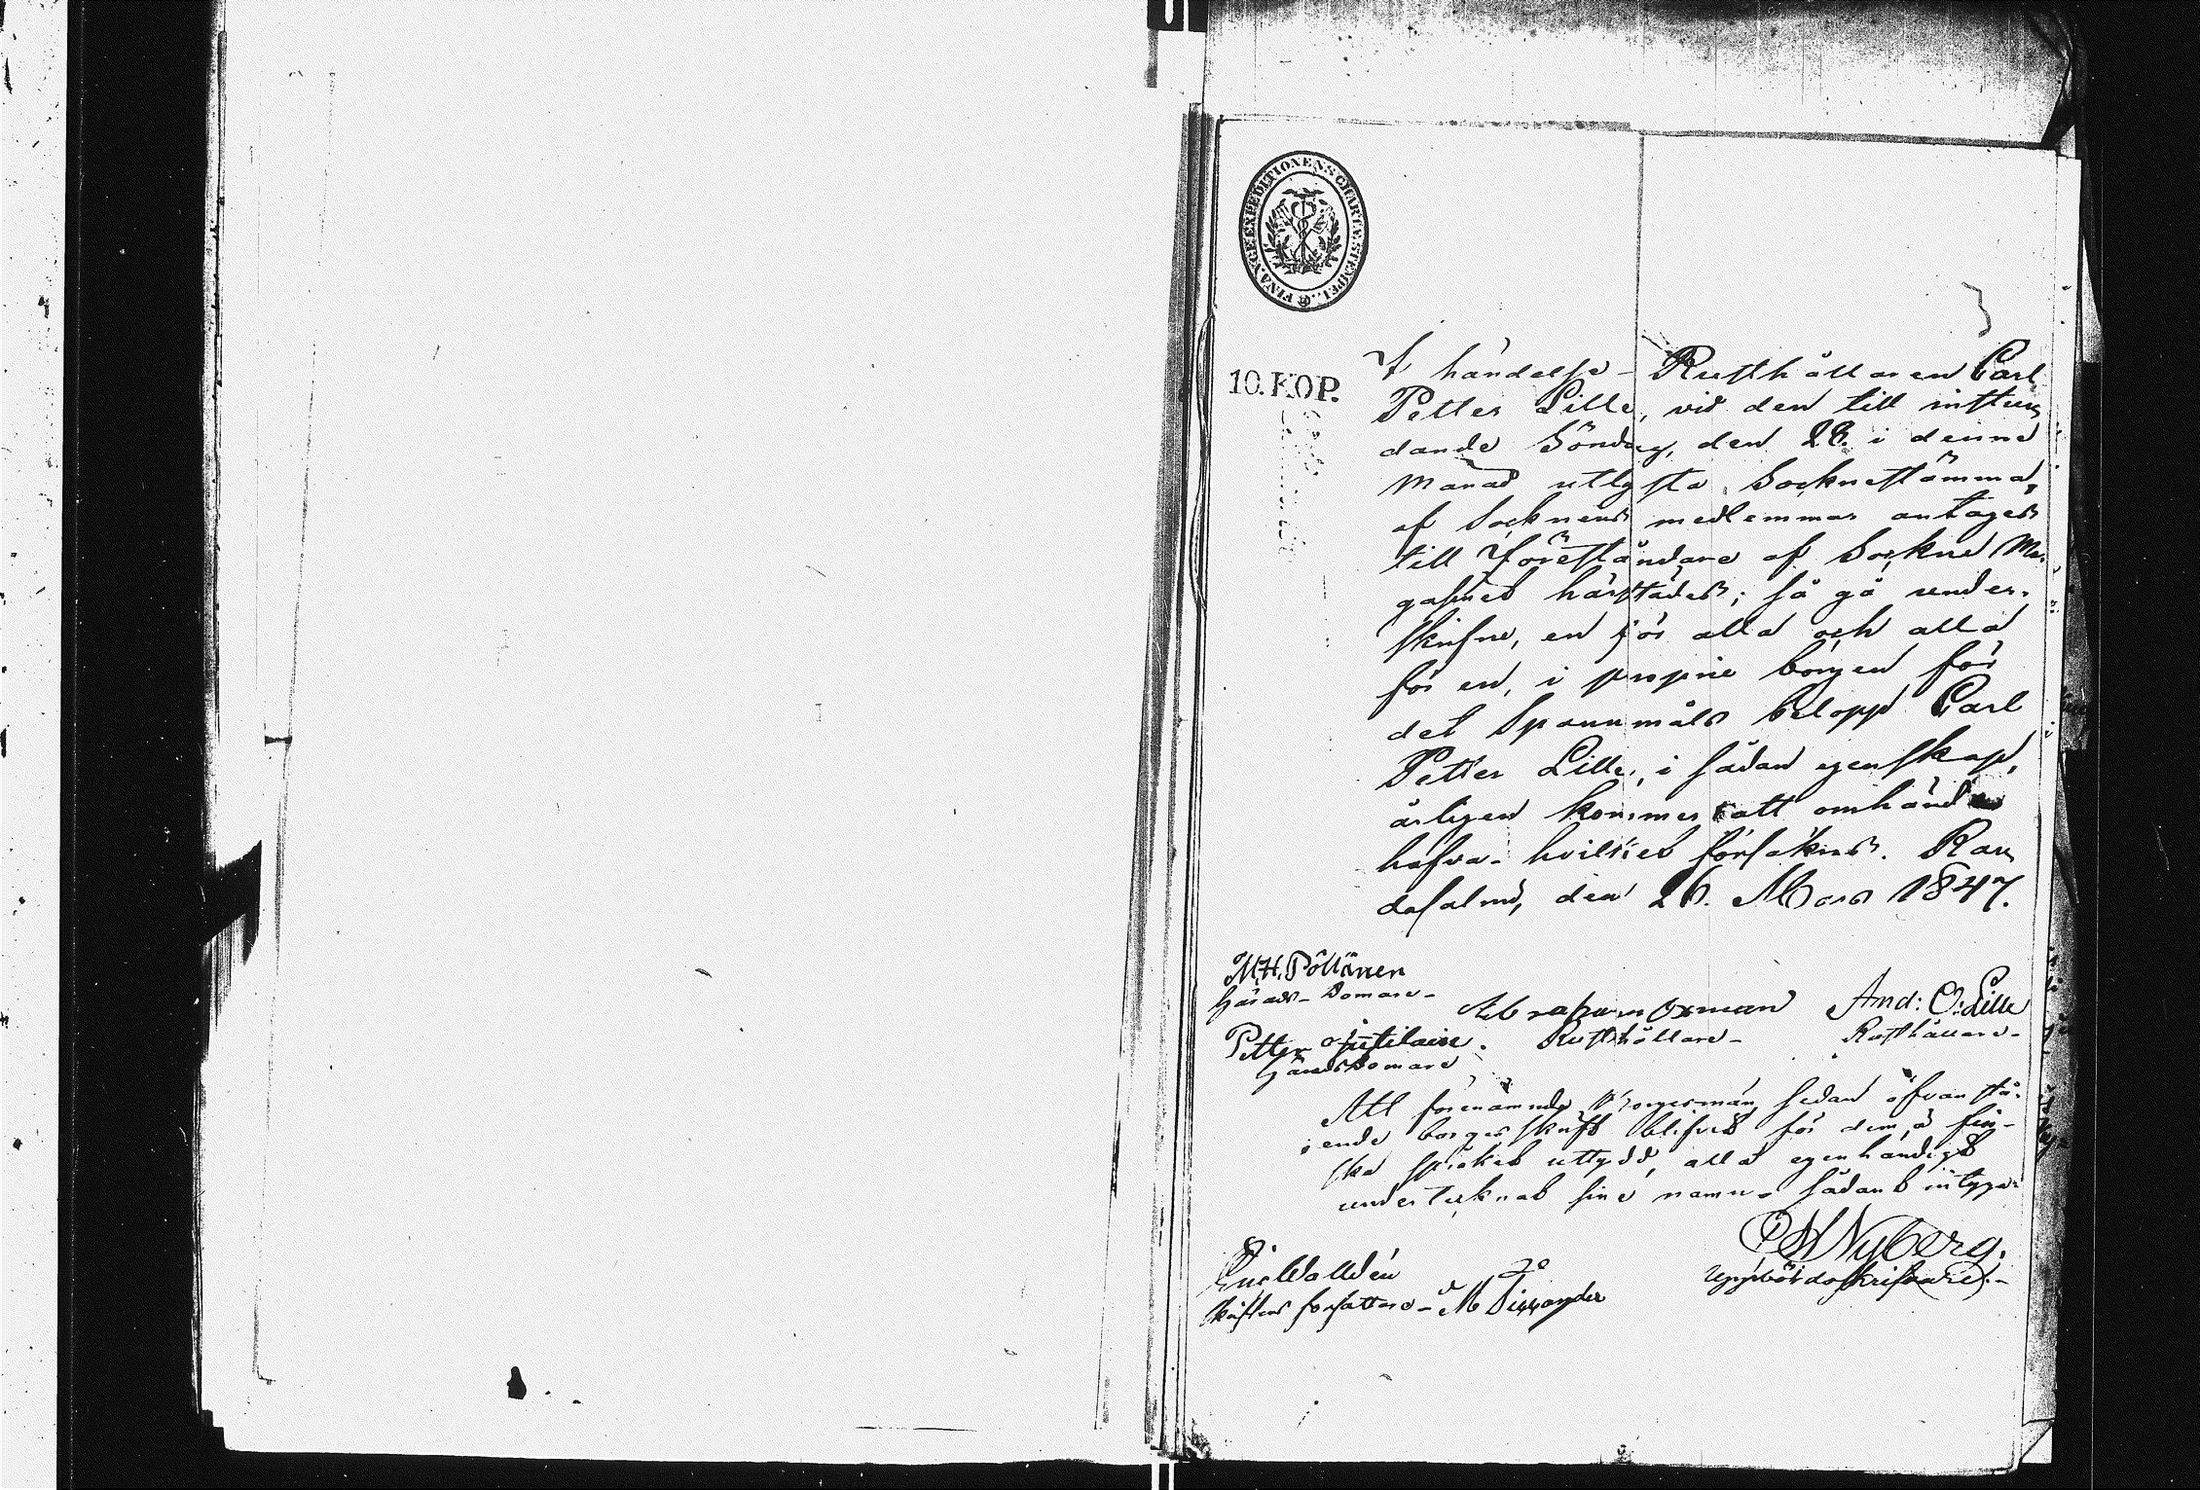 FINANCEEXPEDITIONENS CHARTÆ STEMPEL.
10. KOP.
I händelse Rusthållaren Carl
Petter Lille, vid den till instun
dande Söndag, den 28. i denne
Månad utlysta Socknestämma,
af Socknens medlemmar antages
till Föreståndare af Sockne Ma-
gasinet härstädes; så gå under-
skrifne, en för alla och alla
för en, i proprie borgen för
det Spannmåls belopp Carl
Petter Lille, i sådan egenskap,
årligen kommer att omhänder
hafva - hvilket försäkras. Ran
dasalmi, den 26. Mars 1847.
M.H. Pöllänen
Härads-Domare-
Abraham Oxman
Rusthållare-
And: O: Lille
Rusthållare-
Petter
Häradsdomare
Att förenämnde Borgesmän, sedan ofvanstå-
ende borgesskrift blifvit för dem, å fin-
ska språket uttydd, alla egenhändigt
undertecknat sine namn - sådant intygar
Nyberg.
Uppbördsskrifvare.-
Walldén
Skriftens författare-
M Dissander